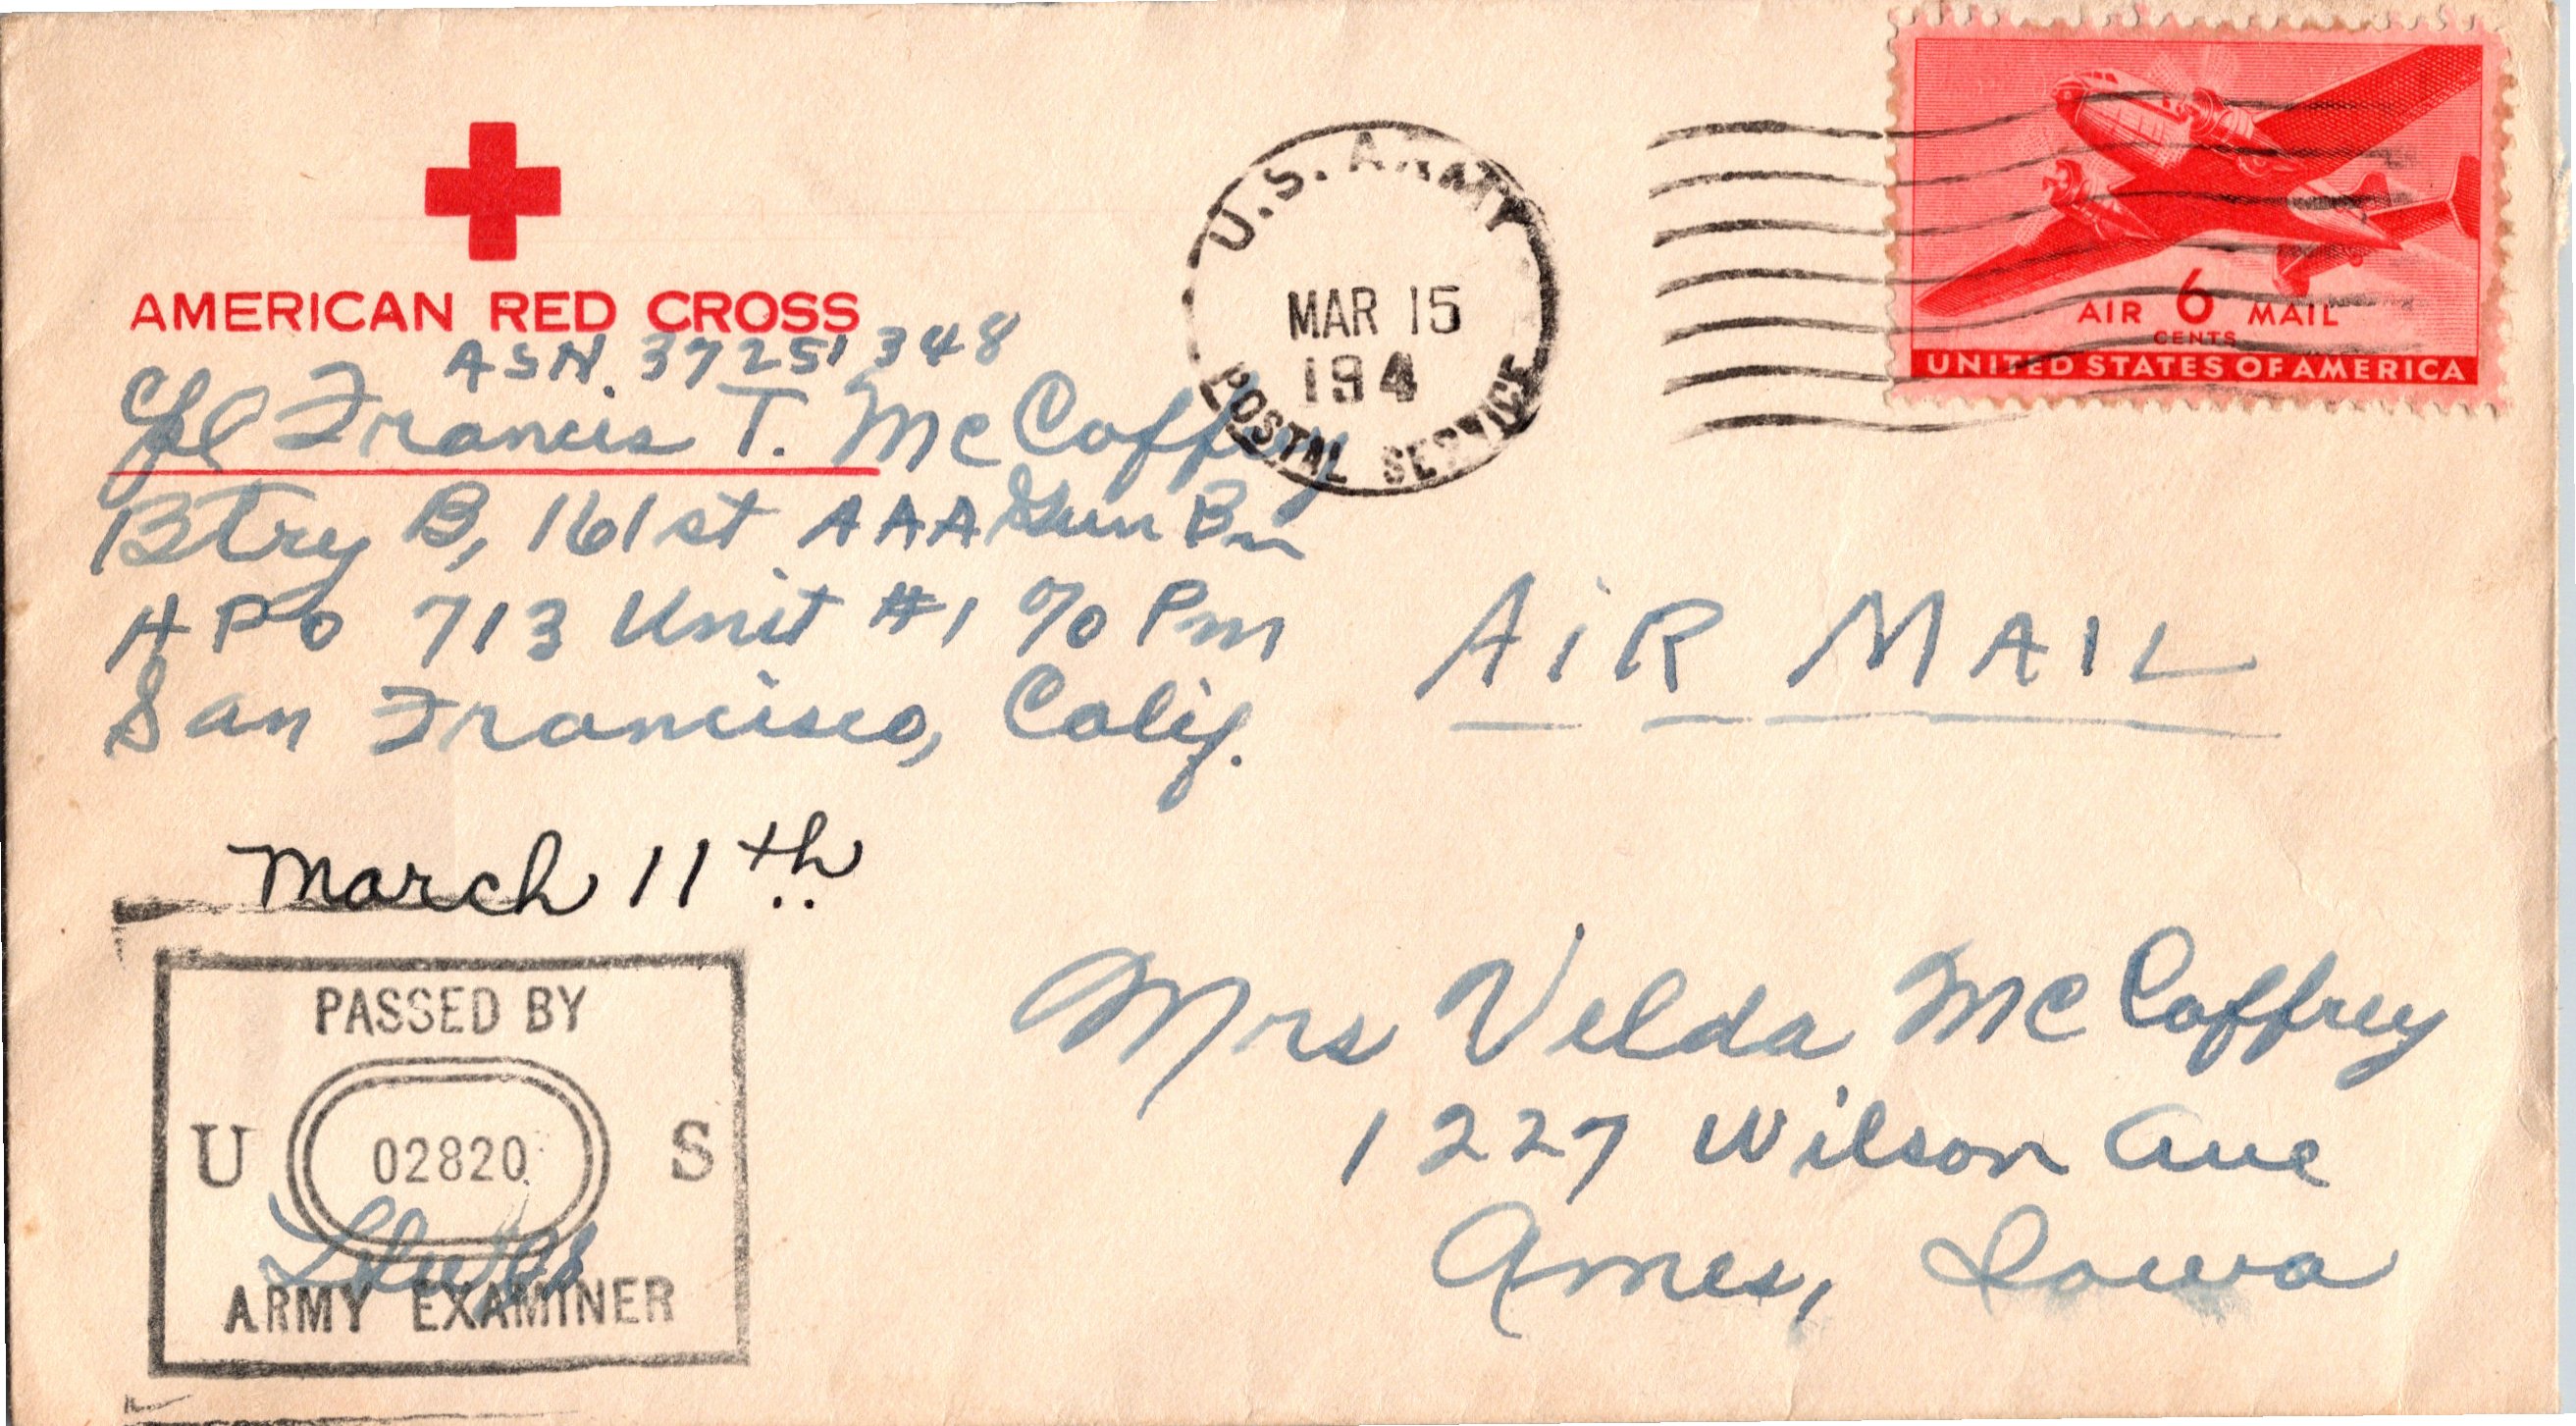 AMERICAN RED CROSS
ASN. 37251348
Cpl Francis T. McCaffrey
Btry B, 161st AAA Gun Bn
APO 713 Unit #1 % Pm
San Francisco, Calif.
U.S. ARMY
MAR 15
194
POSTAL SERVICE
AIR 6 MAIL
CENTS
UNITED STATES OF AMERICA
AiR MAIL
March 11th
PASSED BY
U 02820 S
ARMY EXAMINER
Mrs Velda McCaffrey
1227 Wilson Ave
Ames, Iowa